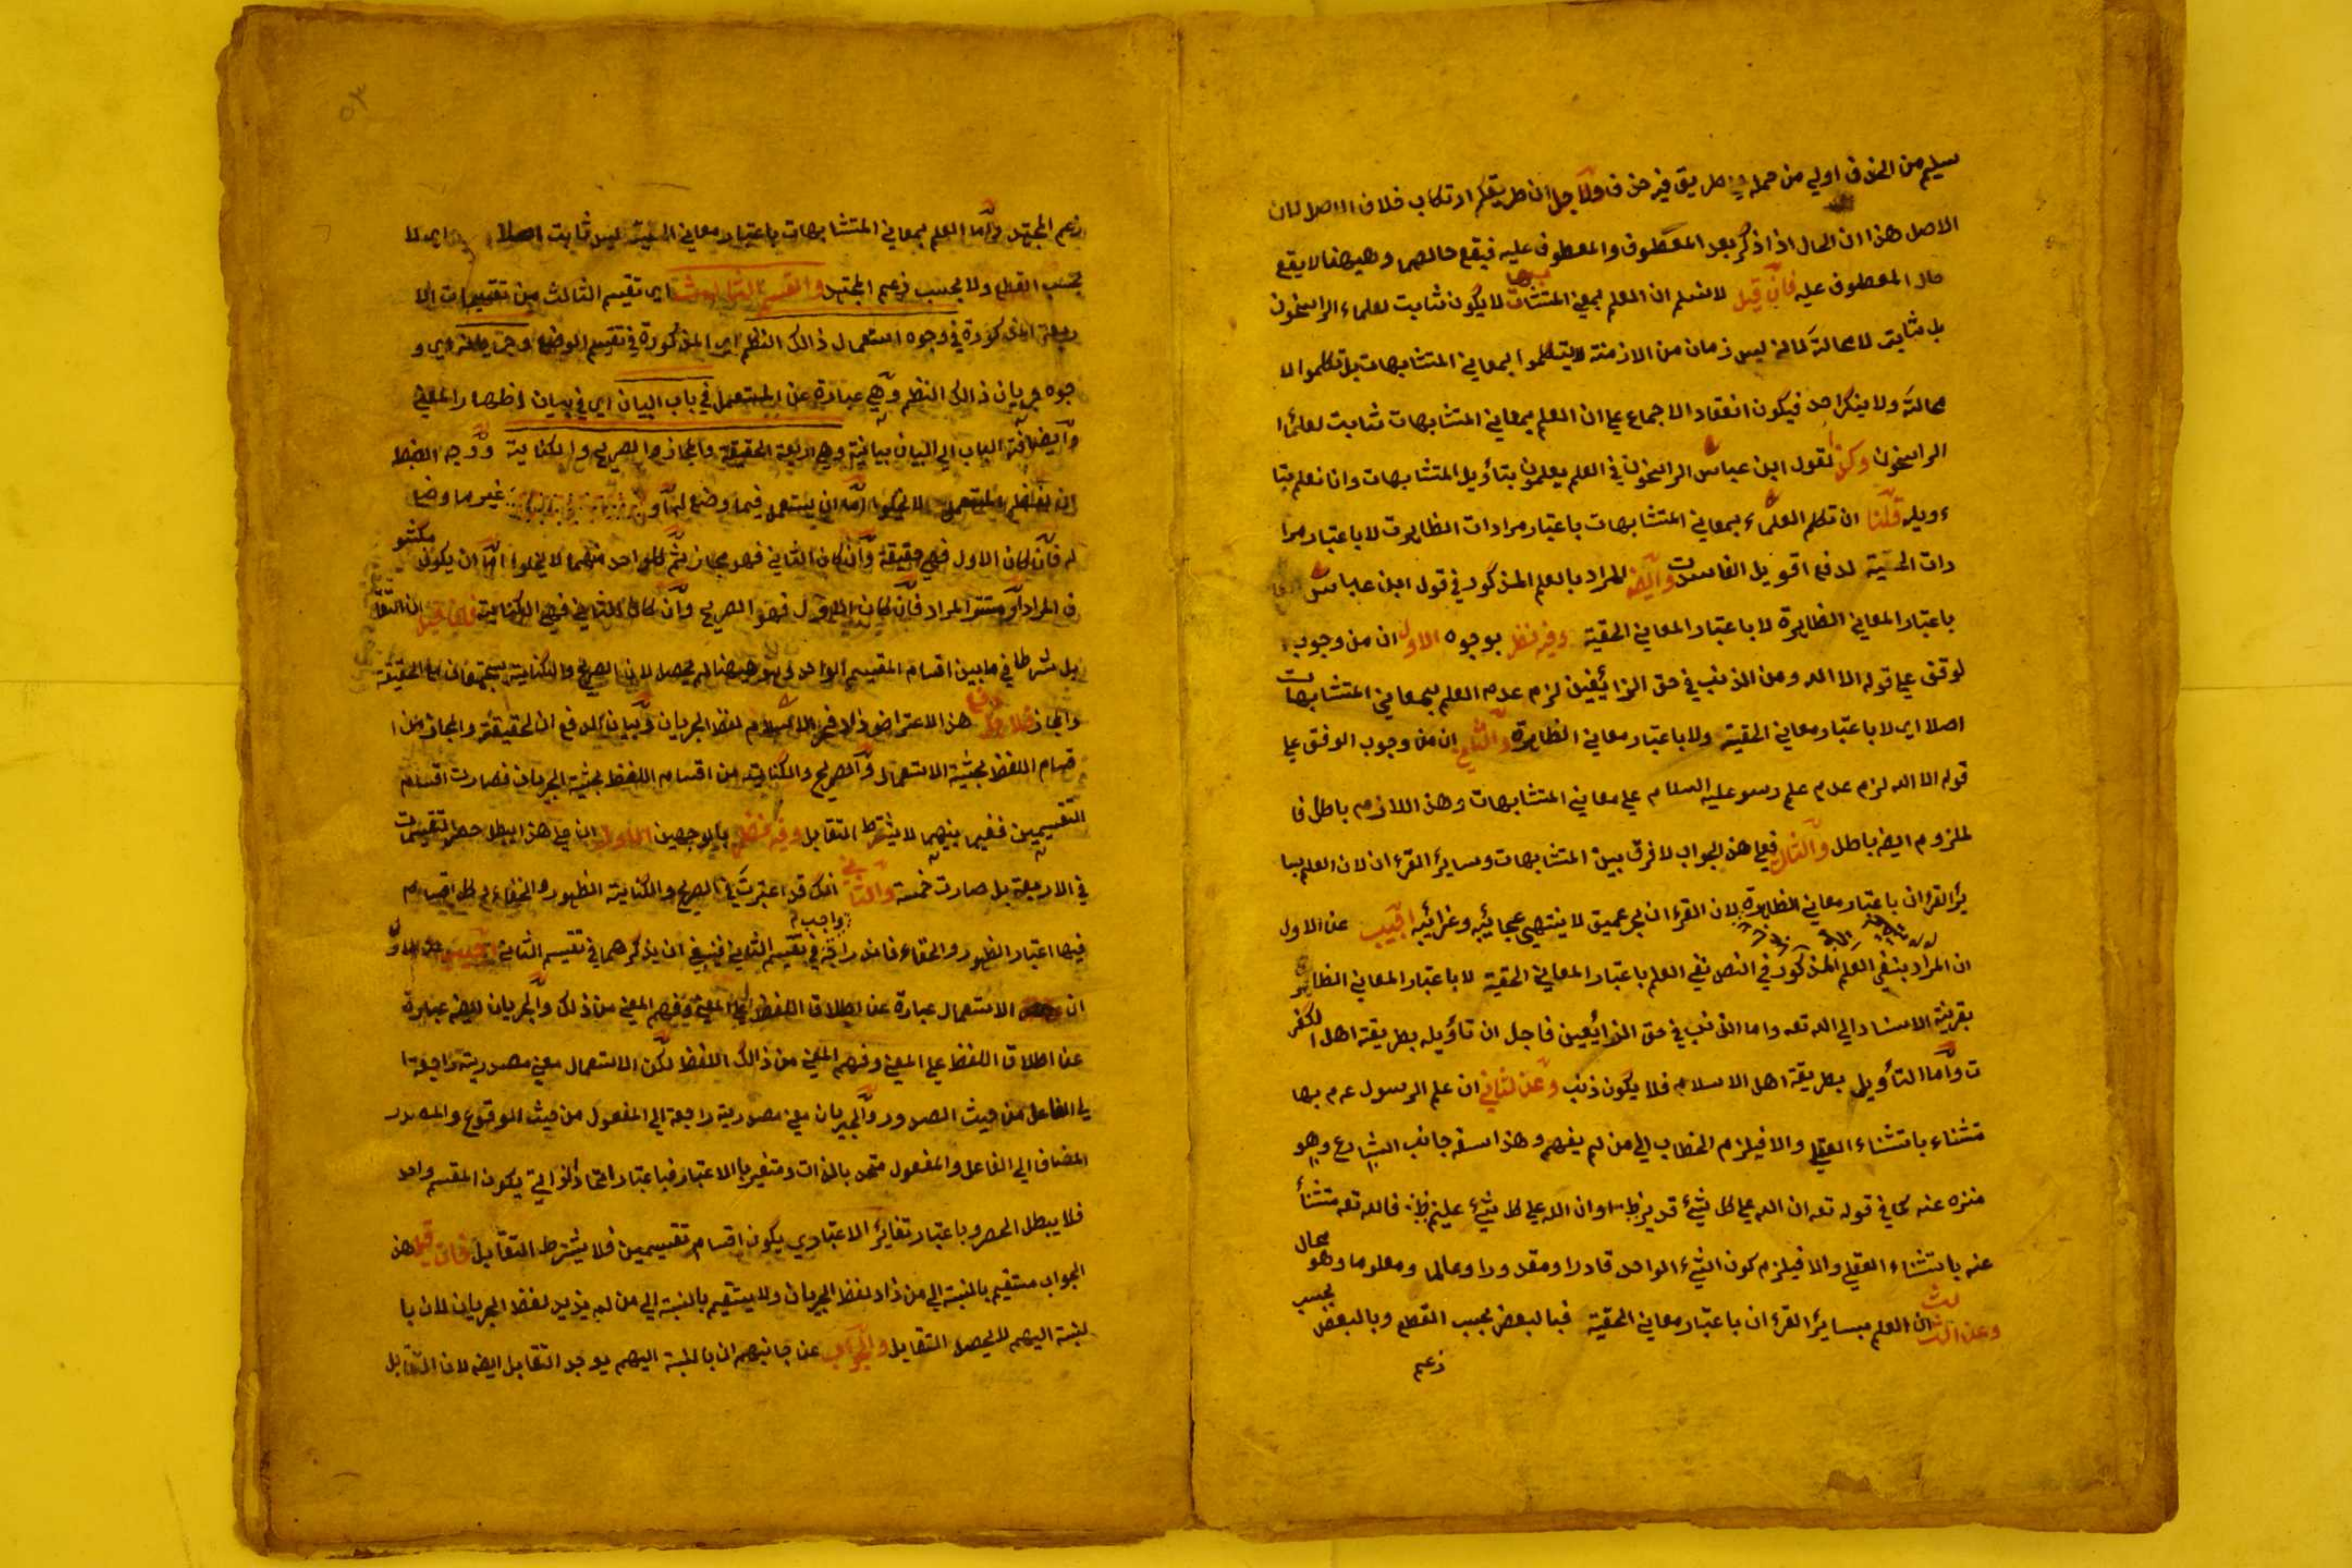 سليم من الحذف اولي من حمله علي طريق فيه حذف ولآجل ان طريقكم ارتكاب خلاف الاصل لان
الاصل هذا ان الحال اذا ذكر بعد المعطوف والمعطوف عليه فيقع حالا وهيهنا لا يقع
حال المعطوف عليه فان قيل لا نسلم ان العلم بمعني المتشابهات لا يكون ثابت لعلماء الراسخون
بل ثابت لا محالة كما انه ليس زمان من الازمنة لا يتكلموا بمعاني المتشابهات بل تكلموا لا
محالة ولا ينكر احد فيكون انعقاد الاجماع علي ان العلم بمعاني المتشابهات ثابت لعلماء
الراسخون وكذا لقول ابن عباس الراسخون في العلم يعلمون بتأويل المتشابهات وانا نعلم بتا
ءويله قلنا ان تكلم العلماء بمعاني المتشابهات باعتبار مرادات الظاهرت لا باعتبار مرا
دات الحقية لدفع اقويل الفاسدت وايضا المراد بالعلم المذكور في قول ابن عباس
باعتبار المعاني الظاهرة لا باعتبار المعاني الحقية وفيه نظر بوجوه الاول ان من وجوب
لوقف علي قوله الا الله ومن الذنب في حق الزائغين لزم عدم العلم بمعاني المتشابهات
اصلا اي لا باعتبار معاني الحقية ولا باعتبار معاني الظاهرة والثاني ان من وجوب الوقف علي
قوله الا الله لزم عدم علم رسو عليه السلام علي معاني المتشابهات وهذا اللازم باطل فا
لملزوم ايضه باطل والثالث فعلي هذا الجواب لا فرق بين المتشابهات وسايرُ القرءان لان العلم بسا
يرُ القرءان باعتبار معاني الظاهرة لان القرءان بحر عميق لا ينتهي عجايبه وغرائبه اجيب عن الاول
ان المراد بنفي العلم المذكور في النص نفي العلم باعتبار المعاني الحقية لا باعتبار المعاني الظاهر
بقرينة الاسناد الي الله تعه واما الذنب في حق الزائغين فاجل ان تاؤيله بطريقة اهل الكفر
ت وآما التأويل بطريقة اهل الاسلام فلا يكون ذنب وعن الثاني ان علم الرسول عم بها
مثناء باستثناء العقلي والا فيلزم الخطاب الي من لم يفهم وهذا سفه جانب الشارع وهو
منزه عنه كما في قوله تعه ان الله علي كل شيء قدير وان الله علي كل شيء عليم فالله تعه مثنأ
عنه باستثناء العقلي والا فيلزم كون الشيء الواحد قادرا ومقدورا وعالما ومعلوما وهو محال
وعن الثالث ان العلم بسايرُ القرءان باعتبار معاني الحقية فبالبعض بحسب القطع وبالبعض بحسب
زعم
زعم المجتهد وآما العلم بمعاني المتشابهات باعتبار معاني الحقية ليس ثابت اصلا اي لا
بحسب القطع ولا بحسب زعم المجتهد والقسم الثالث اي تقسيم الثالث من تقسيمات الا
ربعة المذكورة في وجوه استعمال ذالك النظم اي المذكورة في تقسيم الوضع وجريانه اي و
جوه جريان ذالك النظم وهي عبارة عن المستعمل في باب البيان اي في بيان اظهار المعني
وآيضا اضافة الباب الي البيان بيانية وهي اربعة الحقيقة والمجاز والصريح والكناية ووجه الضبط
ان لفظ المستعمل لا يخلوا اما ان يستعمل فيما وضع له او غير ما وضع
له فان كان الاول فهي حقيقة وان كان الثاني فهو مجاز ثم كل واحد منهما لا يخلوا اما ان يكون مكشو
ف المراد او مستتر المراد فان كان الاول فهو الصريح وان كان الثاني فهي الكناية فان قيل ان التقا
بل شرط في ما بين اقسام المقسم الواحد وهو هيهنا لم يحصل لان الصريح والكناية يجتمعان مع الحقيقة
والمجاز هذا الاعتراض زاد فخر الاسلام لفظ الجريان وبيان الدفع ان الحقيقة والمجاز من ا
قسام اللفظ بحيثية الاستعمال والصريح والكناية من اقسام اللفظ بحيثية الجريان فصارت اقسام
التقسيمين ففيما بينهما لا يشترط التقابل وفيه نظر بالوجهين الاول ان علي هذا يبطل حصر التقسيمات
في الاربعة بل صارت خمسة والثاني انك قد اعتبرت في الصريح والكناية الظهور والخفاء وكل اقسام
فيها اعتبار الظهور والخفاء فاندراجه في تقسيم الثاني فينبغي ان يذكرهما في تقسيم الثاني اجيب عن الاول
ان الاستعمال عبارة عن اطلاق اللفظ علي المعني وفهم المعني من ذلك والجريان ايضه عبارة
عن اطلاق اللفظ علي المعني وفهم المعني من ذالك اللفظ لكن الاستعمال معني مصدرية راجعة ا
لي الفاعل من حيث الصدور والجريان معني مصدرية راجعة الي المفعول من حيث الوقوع والمصدر
المضاف الي الفاعل والمفعول متحد بالذات ومتغير بالاعتبار فباعتبار اتحاد الذاتي يكون المقسم واحد
فلا يبطل الحصر وباعتبار تغاير الاعتباري يكون اقسام تقسيمين فلا يشترط التقابل فان قيل هذا
الجواب مستقيم بالنسبة الي من زاد لفظ الجريان ولا يستقيم بالنسبة الي من لم يزيد لفظ الجريان لان با
لنسبة اليهم لا يحصل التقابل والجواب عن جانبهم ان بالنسبة اليهم يوجد التقابل ايضه لان التقابل